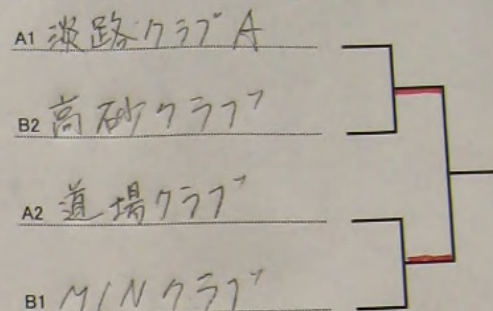 A1 淡路クラブA
B2 高砂クラブ
A2 道場クラブ
B1 MINクラブ